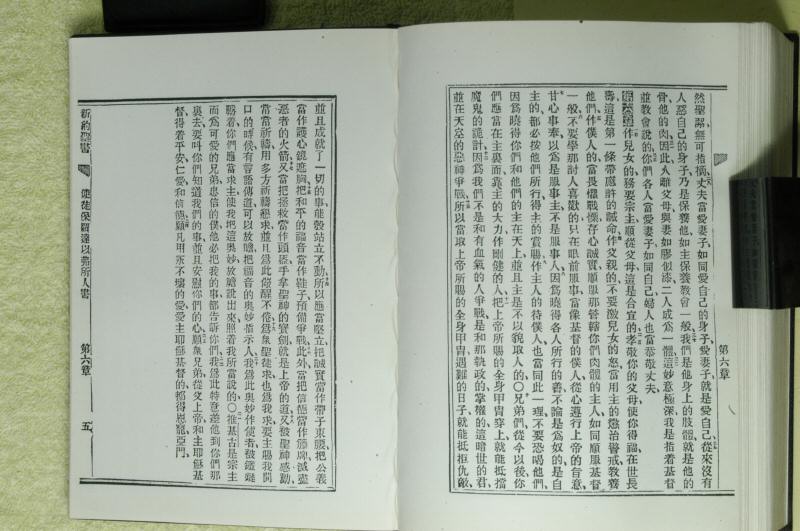 然聖潔無可指摘丈夫當愛妻子如同愛自己的身子愛妻子就是愛自己從來沒有
人惡自己的身子乃是保養他如主保養教會一般我們是他身上的肢體就是他的
骨他的肉因此人離父母與妻如膠似漆二人成爲一體這妙意極深我是指着基督
並教會說的你們各人當愛妻子如同自己婦人也當恭敬丈夫
第六章作兒女的務要宗主順從父母這是合宜的孝敬你的父母使你得福在世長
壽這是第一條帶應許的誡命作父親的不要激兒女的怒當用主的懲治警戒教養
他們作僕人的當畏懼戰慄存心誠實順服那管轄你們肉體的主人如同順服基督
一般不要學那討人喜歡的只在眼前服事當像基督的僕人從心遵行上帝的旨意
甘心事奉以爲是服事主不是服事人因爲曉得各人所行的善不論是爲奴的是自
主的都必按他們所行得主的賞賜作主人的待僕人也當同此一理不要恐喝他們
因爲曉得你們和他們的主在天上並且主是不以貌取人的〇兄弟們從今以後你
們應當在主裏面靠主的大力作剛健的人把上帝所賜的全身甲冑穿上就能抵擋
魔鬼的詭計因爲我們不是和有血氣的人爭戰是和那執政的掌權的這暗世的君
並在天空的惡神爭戰所以當取上帝所賜的全身甲冑遇難的日子就能抵拒仇敵
第六章
並且成就了一切的事能彀站立不動所以應當堅立把誠實當作帶子束腰把公義
當作護心鏡遮胸把和平的福音當作鞋子預備爭戰此外當把信德當作籐牌滅盡
惡者的火箭又當把拯救當作頭盔手拿聖神的寶劍就是上帝的道又被聖神感動
常常祈禱用多方祈禱懇求並且爲此儆醒不倦爲衆聖徒求也爲我求要主賜我開
口的時候有言語傳道可以放膽把福音的奧妙指示人我爲此奧妙作使者被鐵鏈
鎖着你們應當求主使我把這奧妙放膽說出來照着我所當說的〇推基古是宗主
而爲可愛的兄弟忠信的僕他必把我的事都告訴你們我爲此特意差他到你們那
裏去要叫你們知道我們的事並且安慰你們的心願衆兄弟從父上帝和主耶穌基
督得着平安仁愛和信德願凡用不壞的愛愛主耶穌基督的都得恩寵亞門
新約聖書 使徒保羅達以弗所人書 第六章 五